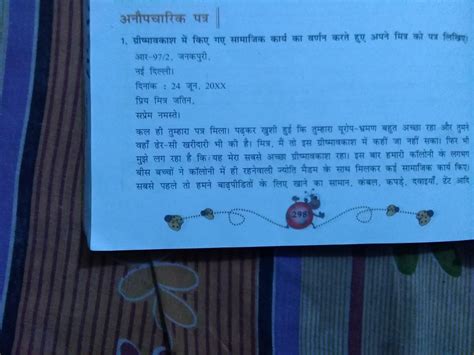 अनौपचारिक पत्र
1. ग्रीष्मावकाश में किए गए सामाजिक कार्य का वर्णन करते हुए अपने मित्र को पत्र लिखिए।
आर-97/2, जनकपुरी,
नई दिल्ली।
दिनांक : 24 जून, 20XX
प्रिय मित्र जतिन,
सप्रेम नमस्ते।
कल ही तुम्हारा पत्र मिला। पढ़कर खुशी हुई कि तुम्हारा यूरोप-भ्रमण बहुत अच्छा रहा और तुमने
वहाँ ढेर-सी खरीदारी भी की है। मित्र, मैं तो इस ग्रीष्मावकाश में कहीं जा नहीं सका। फिर भी
मुझे लग रहा है कि यह मेरा सबसे अच्छा ग्रीष्मावकाश रहा। इस बार हमारी कॉलोनी के लगभग
बीस बच्चों ने कॉलोनी में ही रहनेवाली ज्योति मैडम के साथ मिलकर कई सामाजिक कार्य किए।
सबसे पहले तो हमने बाढ़पीडितों के लिए खाने का सामान, कंबल, कपड़े, दवाइयाँ, टेंट आदि
298